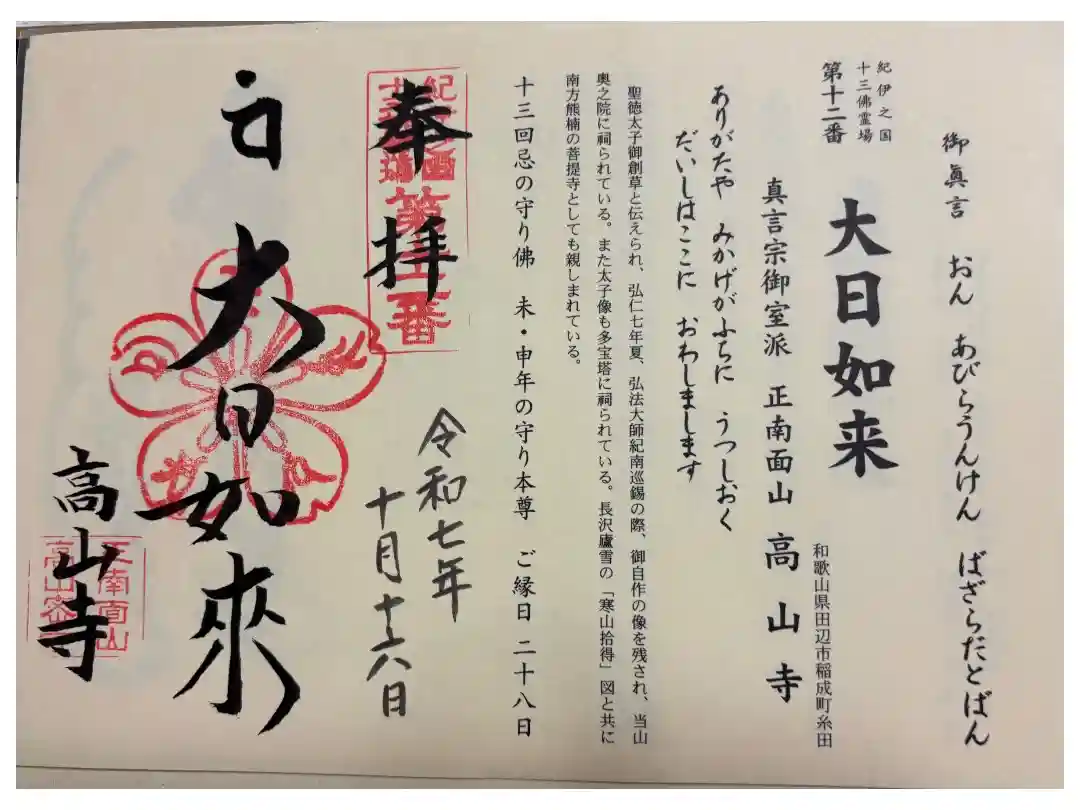 御眞言　おん　あびらうんけん　ばざらだとばん
紀伊之国
十三佛霊場
第十二番
大日如来
和歌山県田辺市稲成町糸田
真言宗御室派　正南面山　高山寺
ありがたや　みかげがふちに　うつしおく
だいしはここに　おわしまします
聖徳太子御創草と伝えられ、弘仁七年夏、弘法大師紀南巡錫の際、御自作の像を残され、当山
奥之院に祠られている。また太子像も多宝塔に祠られている。長沢廬雪の「寒山拾得」図と共に
南方熊楠の菩提寺としても親しまれている。
十三回忌の守り佛　未・申年の守り本尊　ご縁日 二十八日
奉拝
第十二番
令和七年
十月十六日
大日如來
高山寺
正南面山